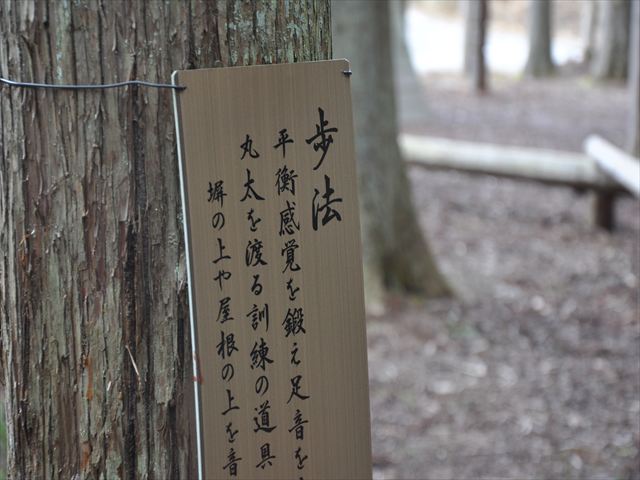 歩法
平衡感覚を鍛え足音を
丸太を渡る訓練の道具
塀の上や屋根の上を音